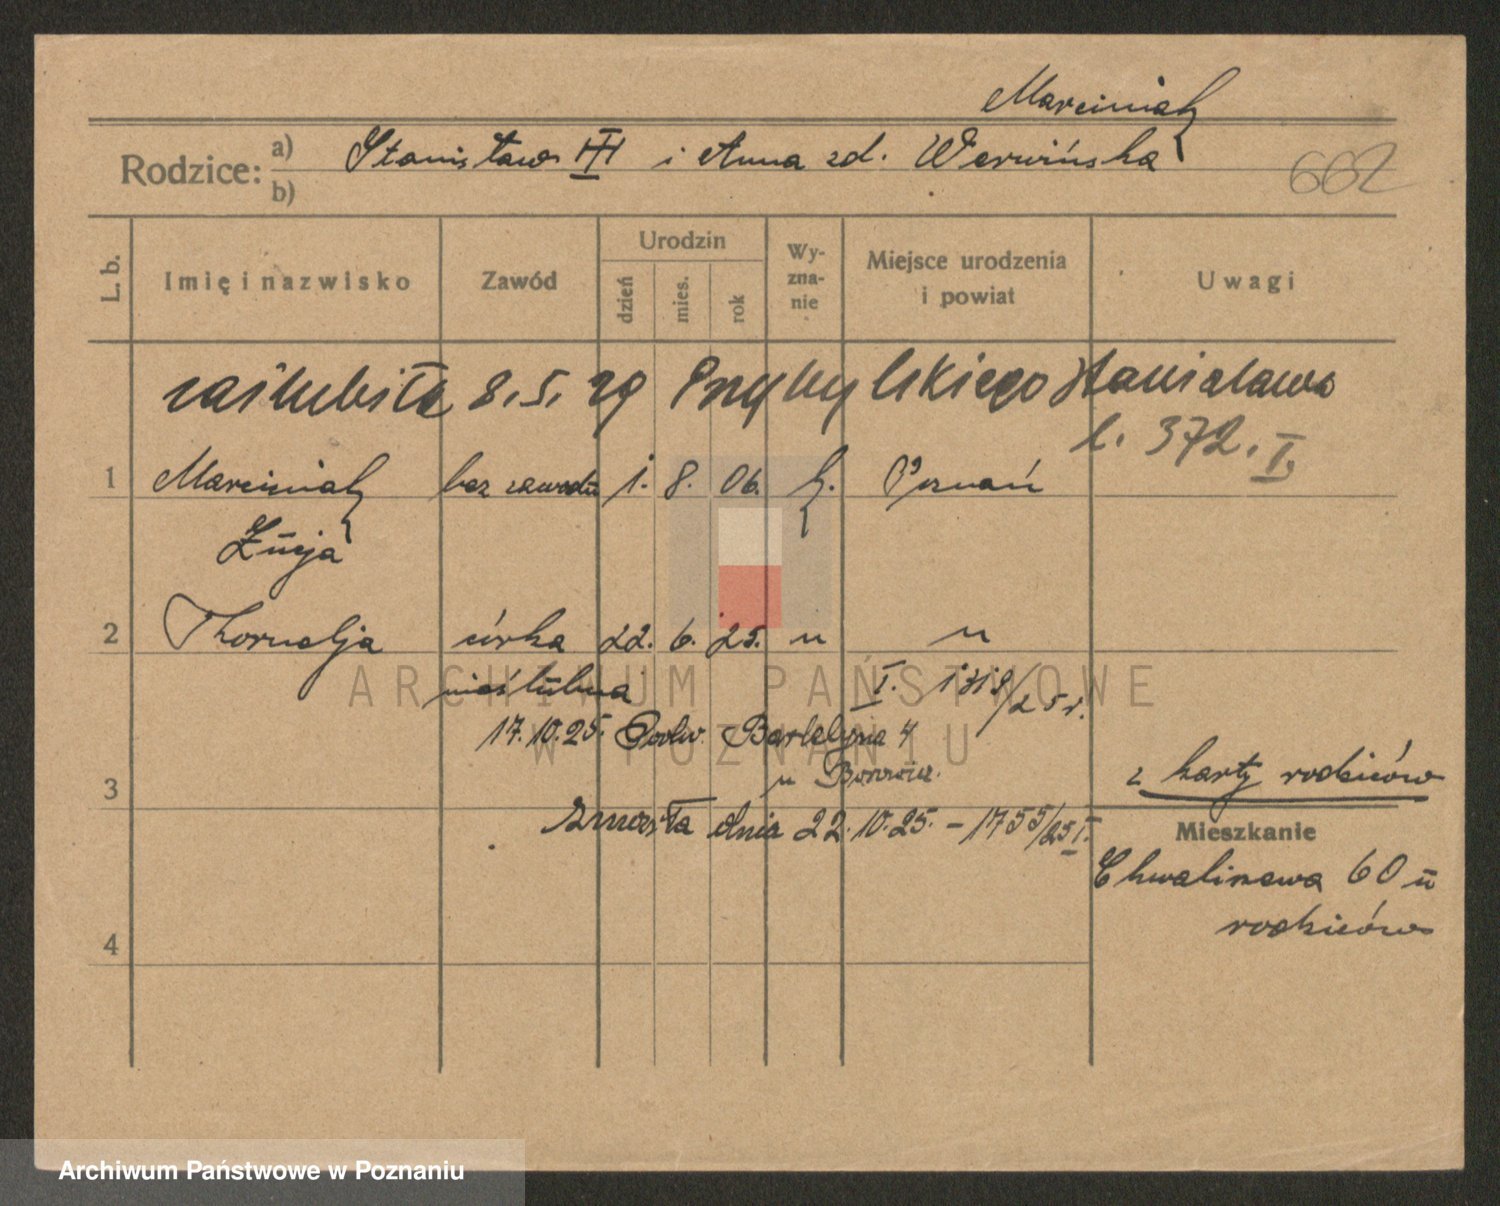 Marciniak
Rodzice: a) Stanisław III i Anna zd. Werwińska
b)
662
L. b.
Imię i nazwisko
Zawód
Urodzin
dzień
mies.
rok
Wy-
zna-
nie
Miejsce urodzenia
i powiat
Uwagi
zaślubiła 8.5.29 Przybylskiego Stanisława
l. 372. I.
1 Marciniak bez zawodu 1. 8. 06. k. Poznań
Łucja
2 Kornelja córka 22. 6. 25. " "
nieślubna I. 1319/25 r.
17.10.25. Bartel 4
u
z karty rodziców
3
zmarła dnia 22.10.25. – 1755/25 I.
Mieszkanie
Chwaliszewo 60 u
rodziców
4
ARCHIWUM PAŃSTWOWE
W POZNANIU
Archiwum Państwowe w Poznaniu